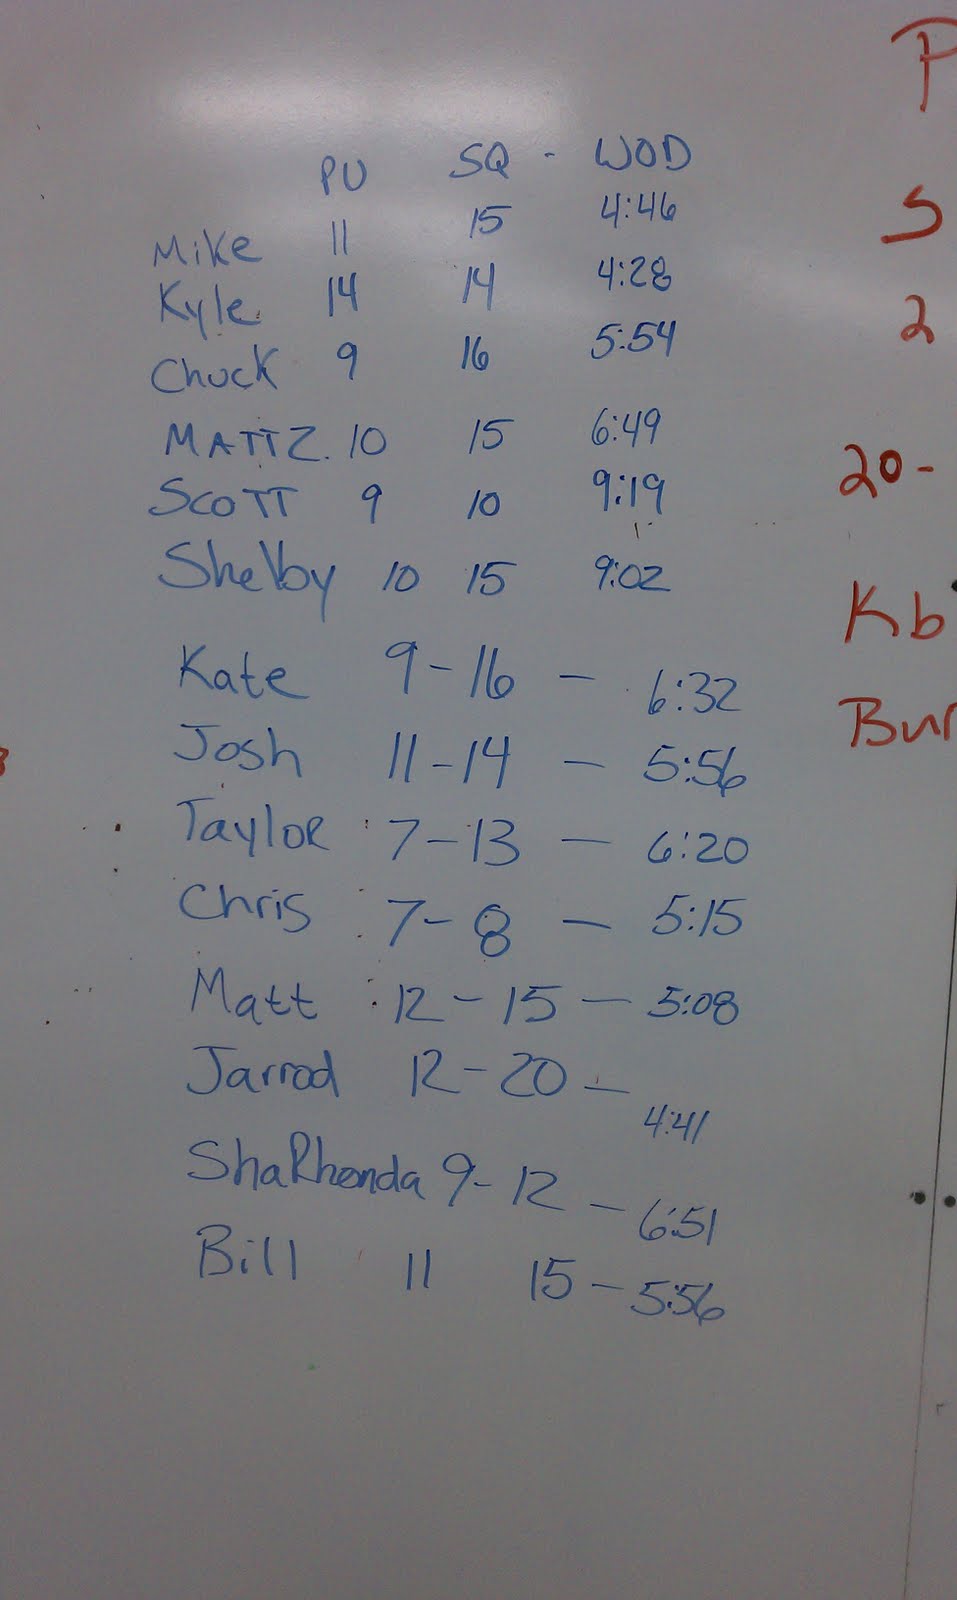 PU SQ - WOD
Mike 11 15 4:46
Kyle 14 14 4:28
Chuck 9 16 5:54
MATTZ. 10 15 6:49
SCOTT 9 10 9:19
Shelby 10 15 9:02
Kate 9-16 - 6:32
Josh 11-14 - 5:56
Taylor 7-13 - 6:20
Chris 7-8 - 5:15
Matt 12-15 - 5:08
Jarrod 12-20 - 4:41
ShaRhonda 9-12 - 6:51
Bill 11 15 - 5:56
P
S
2
20-
Kb
Bur